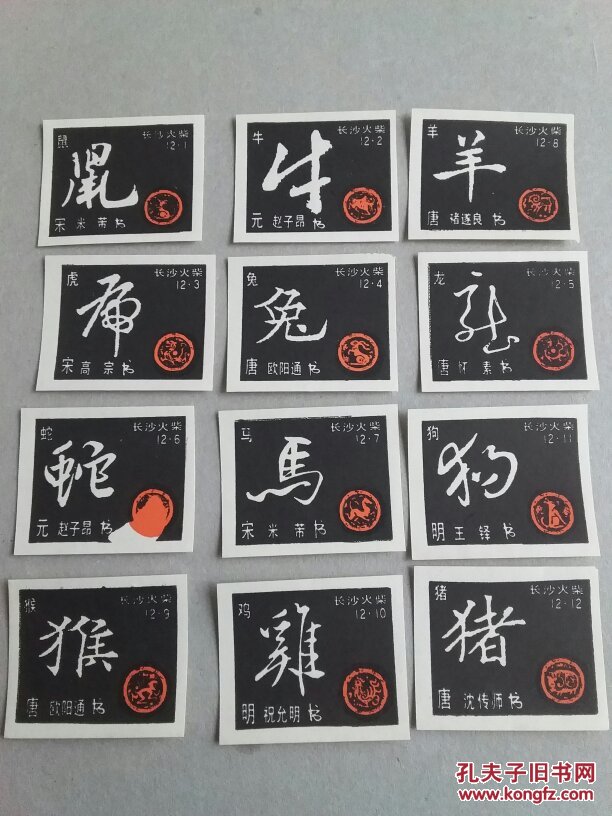 鼠
长沙火柴
12·1
鼠
宋 米 芾 书
牛
长沙火柴
12·2
牛
元 赵子昂 书
羊
长沙火柴
12·8
羊
唐 褚遂良 书
虎
长沙火柴
12·3
虎
宋 高 宗 书
兔
长沙火柴
12·4
兔
唐 欧阳通 书
龙
长沙火柴
12·5
龙
唐 怀 素 书
蛇
长沙火柴
12·6
蛇
元 赵子昂 书
马
长沙火柴
12·7
馬
宋 米 芾 书
狗
长沙火柴
12·11
狗
明 王 铎 书
猴
长沙火柴
12·9
猴
唐 欧阳通 书
鸡
长沙火柴
12·10
雞
明 祝允明 书
猪
长沙火柴
12·12
猪
唐 沈传师 书
孔夫子旧书网
www.kongfz.com